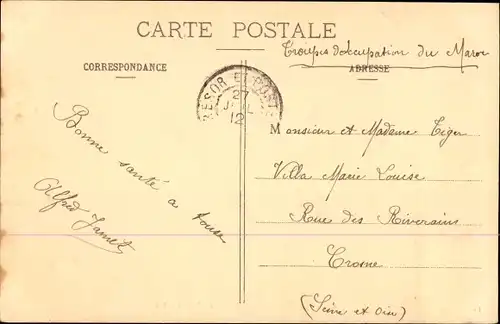 CARTE POSTALE
Troupes d'occupation du Maroc
CORRESPONDANCE
ADRESSE
TRESOR ET POSTES
27
12
Bonne santé a tous
Alfred Jamet
Monsieur et Madame Tiger
Villa Marie Louise
Rue des Riverains
Crosne
(Seine et Oise)